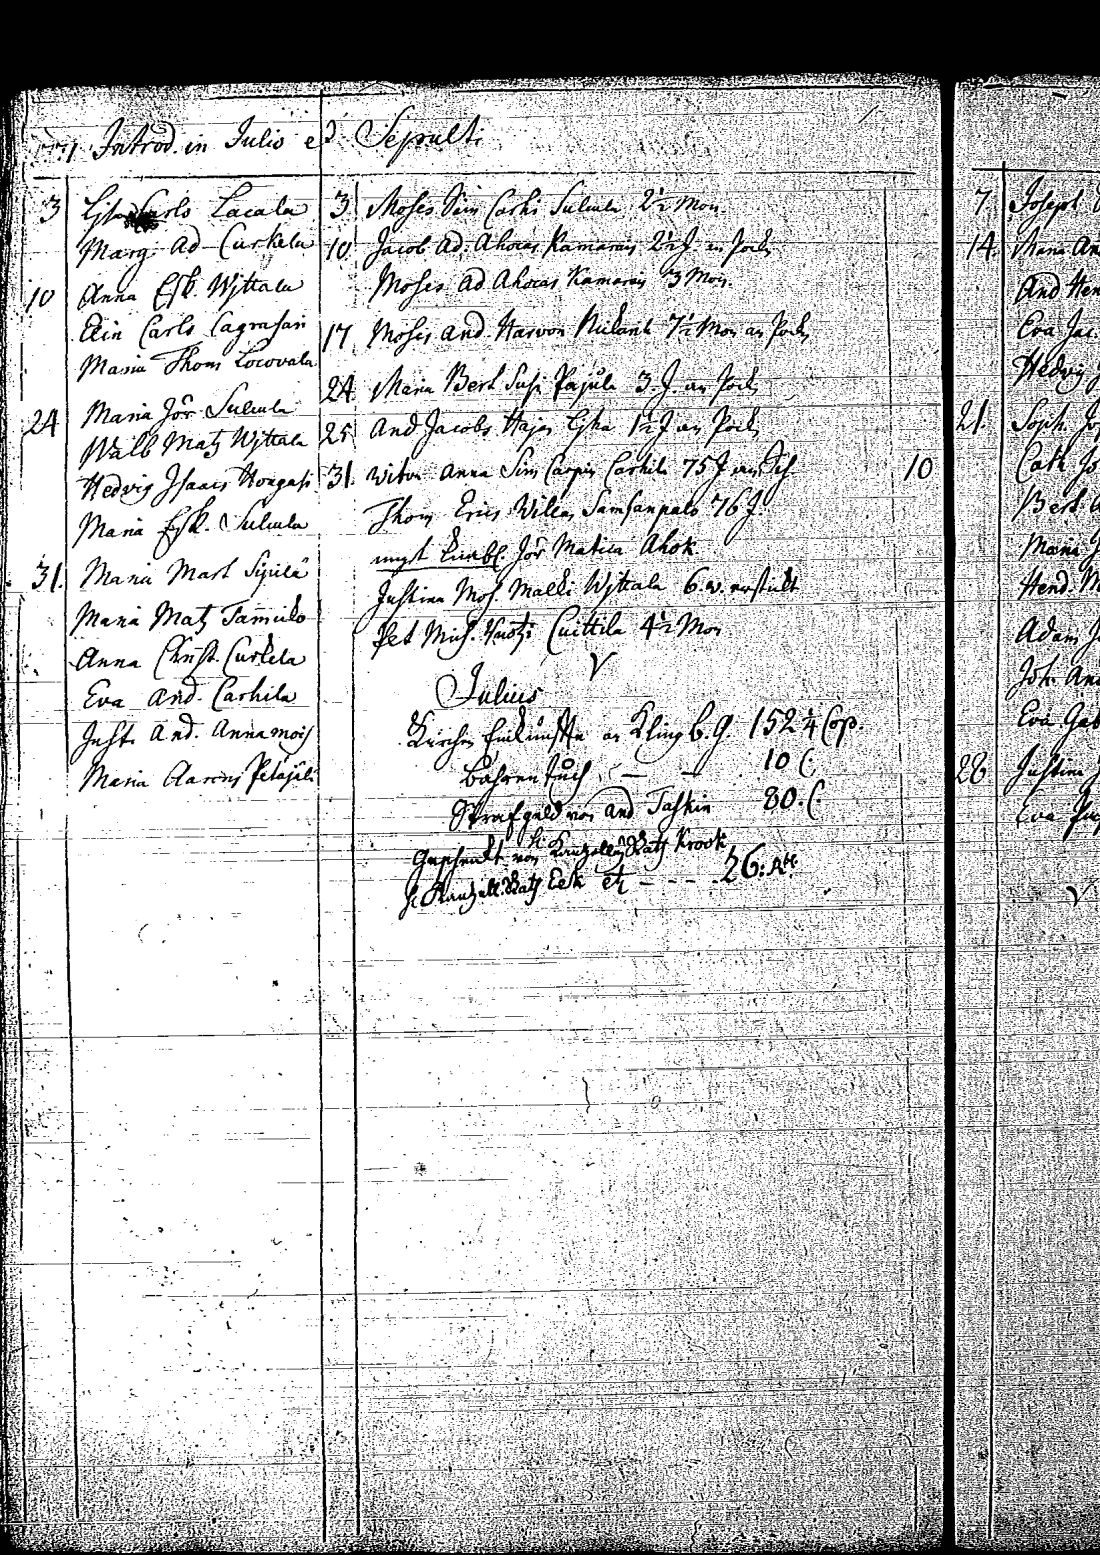 Introd. in Julio et Sepulti
3 Lisa Carls Lacala
Marg. Ad. Curkela
10 Anna Esk. Wjttala
Elin Carls Cagrasari
Maria Thom Locovala
24 Maria Jör. Sucula
Walb Matz Wjttala
Hedvig Isaacs Hongasi
Maria Esk. Sucula
31. Maria Mart Sipilä
Maria Matz Tamulo
Anna Christ. Curkela
Eva And. Carhila
Just. And. Annamois
Maria Aarons Petäjäli
3 Moses Sim Carhi Sucula 2½ Mon.
10 Jacob Ad. Ahocas Kamarais 2½ J. an Pock.
Moses Ad Ahocas Kamarais 3 Mon.
17 Moses And. Harvon 7½ Mon an Pock.
24 Maria Bert Susi Pajula 3. J. an Pock.
25 And Jacobs Hajas 1½ J an Pock.
31. Witwe Anna Sim Carpin Carhila 75 J
Thom Erics Willas Samsanpalo 76 J.
Jör Matica Ahok.
Justina Mos Malki Wjttala 6. w. erstickt
Pet Mich. Cuittila 4½ Mon
Julius
Kirchen Einkünffte an Kling b. g. 152¼ Cop.
Bahrentuch — — 10 C.
Strafgeld von And Taskin 80. C.
Geschenkt von Krook
26: Rbl.
10
7 Joseph
14. Maria An
And Hen
Eva Jac.
Hedvig
21. Soph. Jo
Cath Jo
Bert.
Maria
Hend. M
Adam J
Joh. And
Eva Gab
28 Justina
Eva